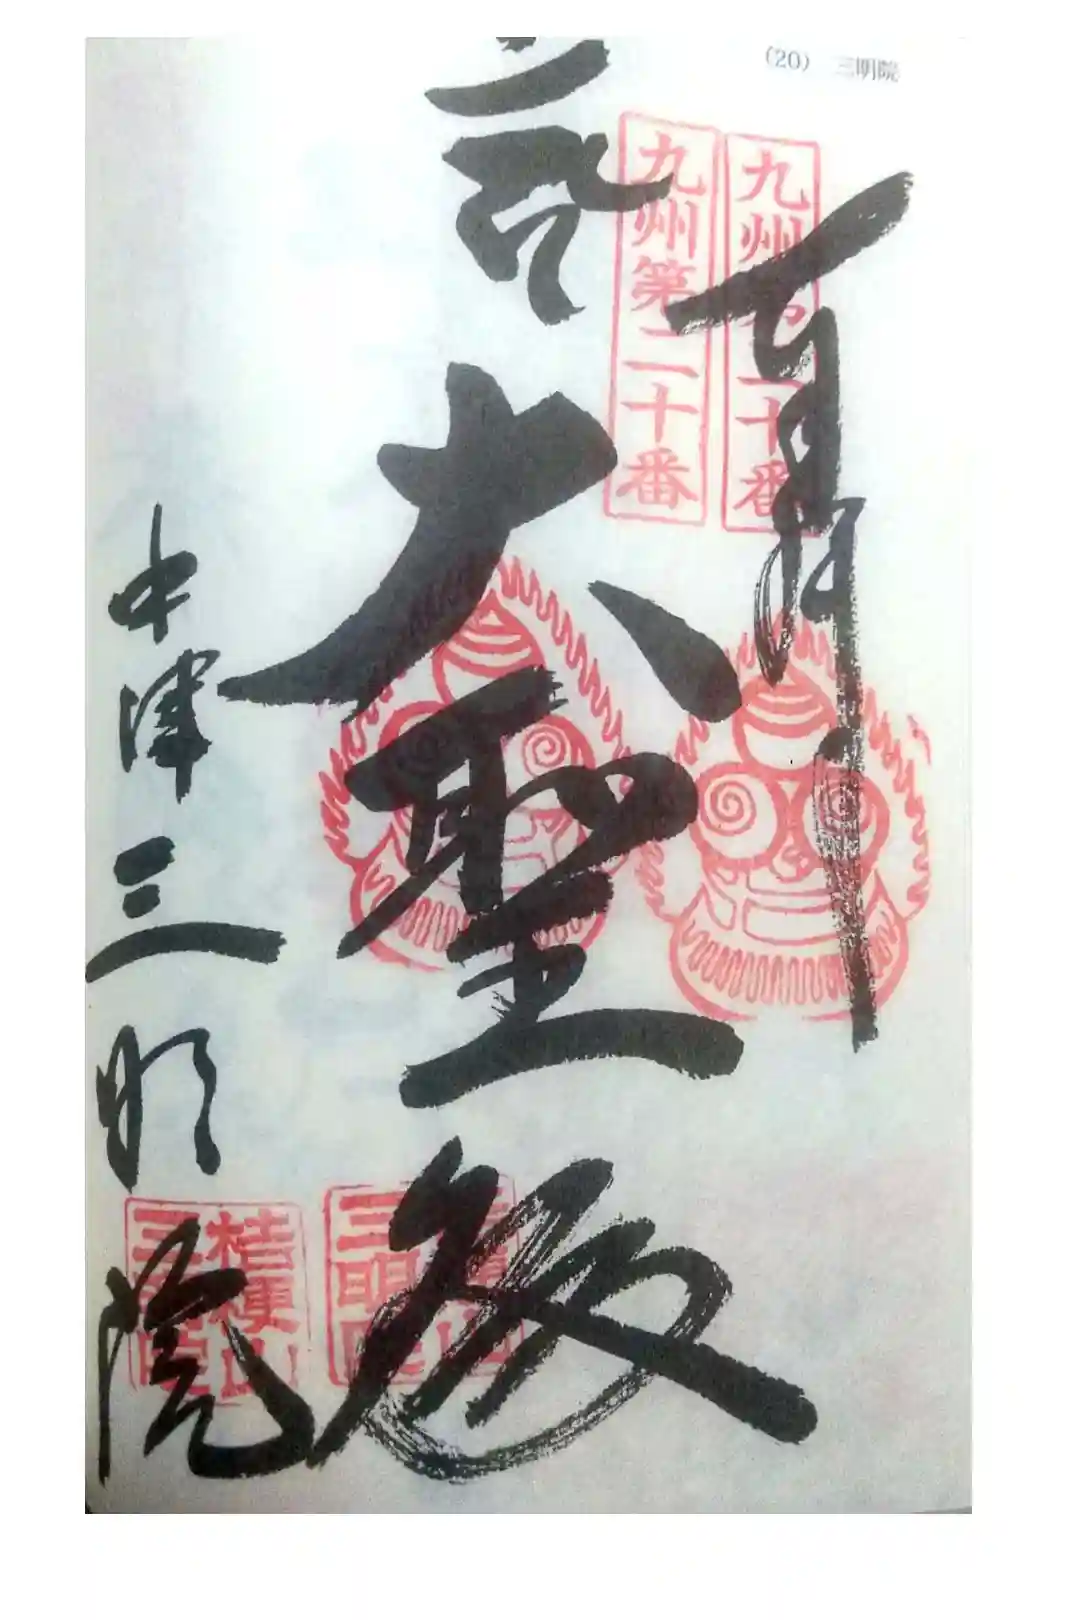 (20) 三明院
奉拝
九州第二十番
九州第二十番
大聖殿
中津三明院
桔梗山
三明院
三明院